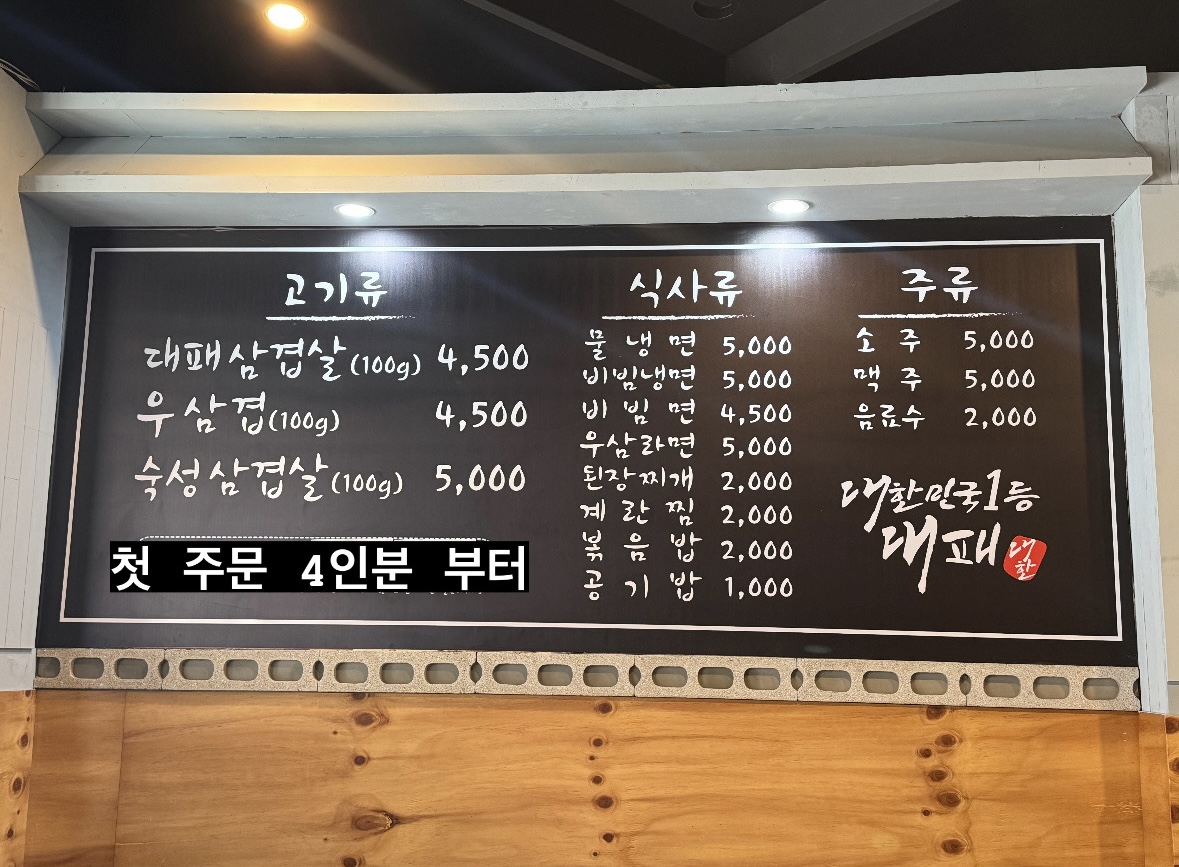 고기류
대패삼겹살(100g) 4,500
우삼겹(100g) 4,500
숙성삼겹살(100g) 5,000
첫 주문 4인분 부터
식사류
물냉면 5,000
비빔냉면 5,000
비빔면 4,500
우삼라면 5,000
된장찌개 2,000
계란찜 2,000
볶음밥 2,000
공기밥 1,000
주류
소주 5,000
맥주 5,000
음료수 2,000
대한민국1등
대패
대한